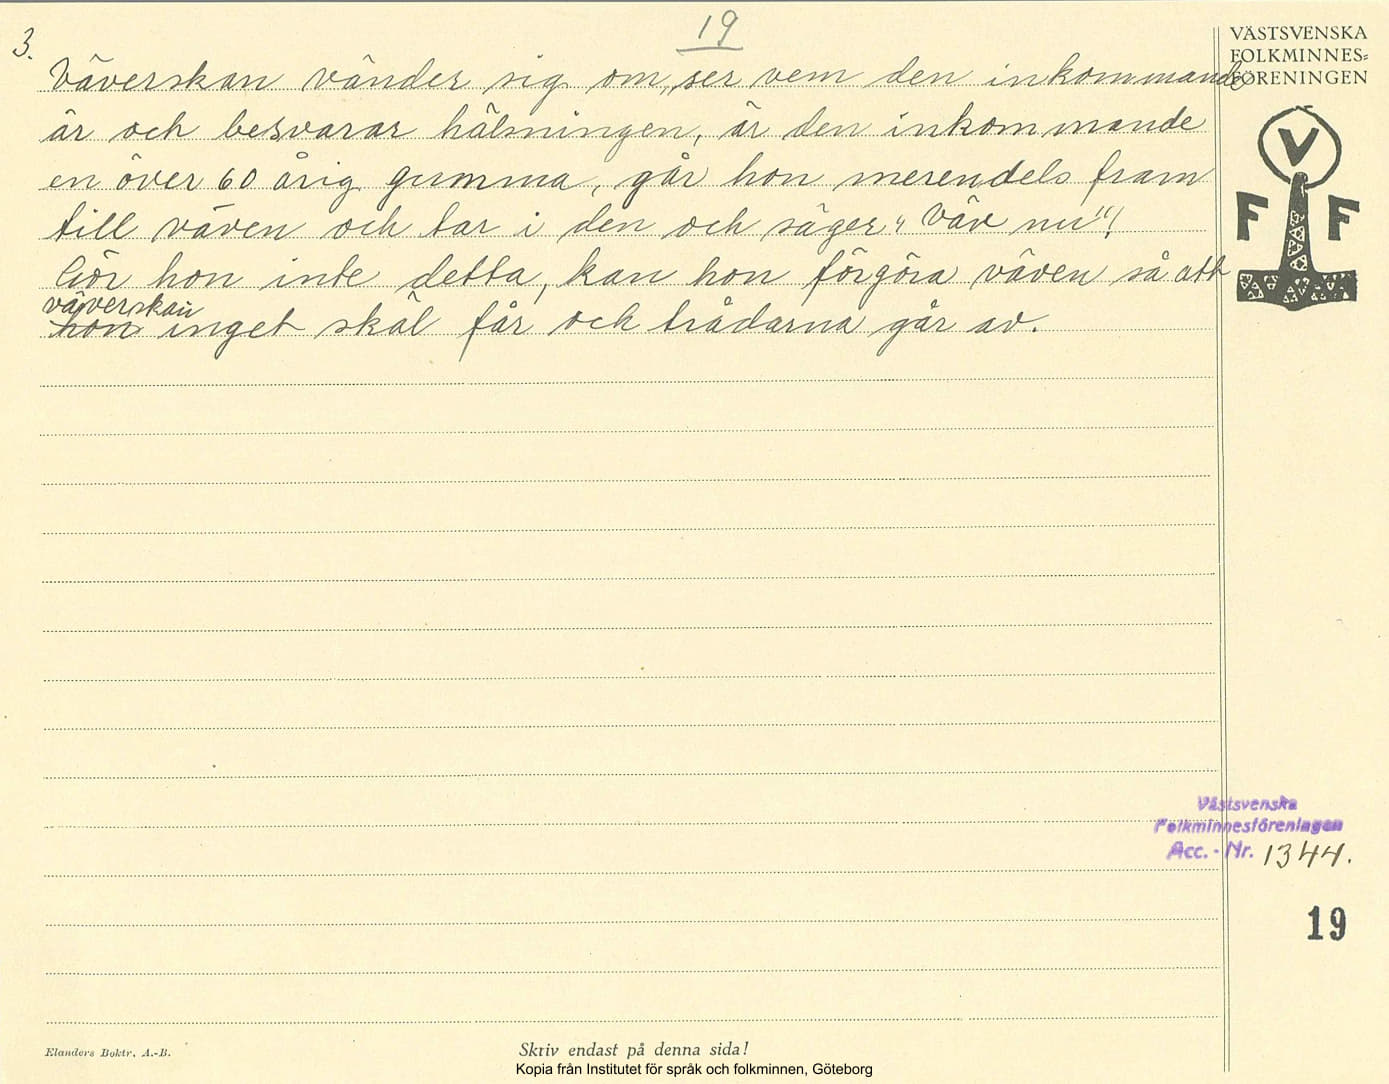 3.
19
VÄSTSVENSKA
FOLKMINNES=
FÖRENINGEN
Väverskan vänder sig om, ser vem den inkommande
är och besvarar hälsningen, är den inkommande
en över 60 årig gumma, går hon merendels fram
till väven och tar i den och säger "Väv nu"!
Gör hon inte detta, kan hon förgöra väven så att
väverskan
hon inget skäl får och trådarna går av.
V
F F
Västsvenska
Folkminnesföreningen
Acc. - Nr. 1344.
19
Elanders Boktr. A.-B.
Skriv endast på denna sida!
Kopia från Institutet för språk och folkminnen, Göteborg